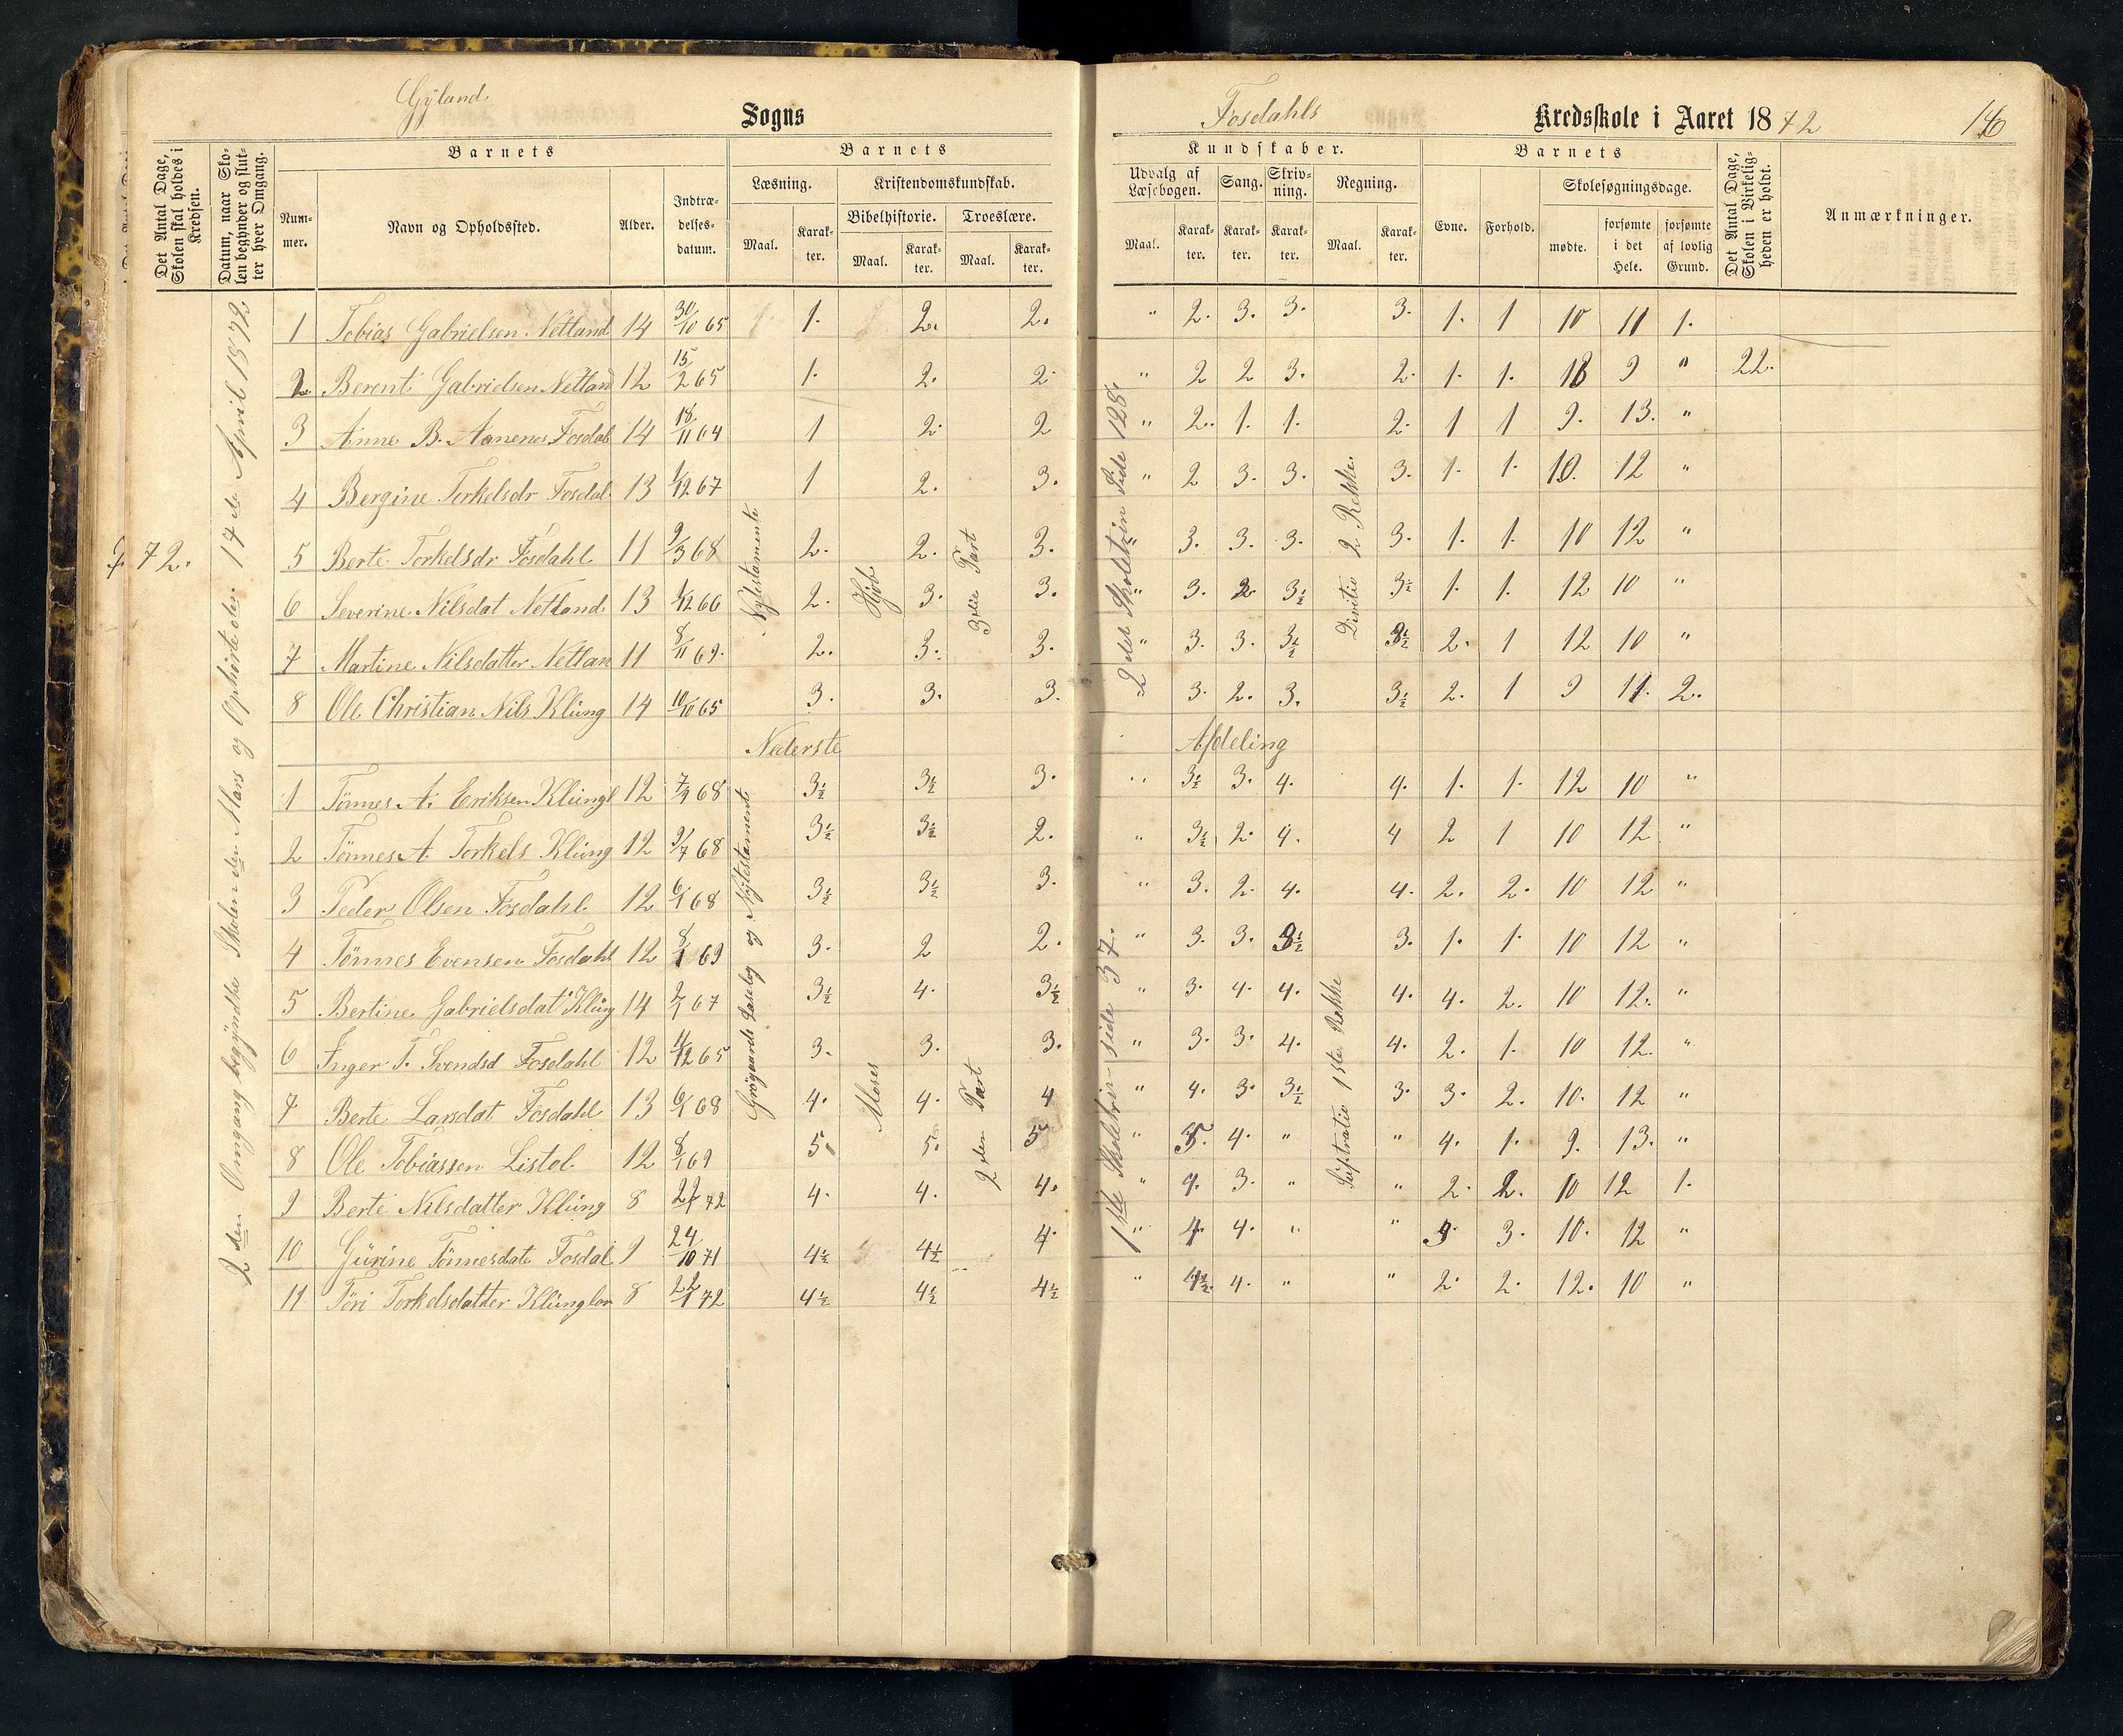 Gyland Sogns Fosdahls Kredsskole i Aaret 1872 16
Det Antal Dage, Skolen skal holdes i Kredsen.
Datum, naar Skolen begynder og slutter hver Omgang.
Barnets
Nummer.
Navn og Opholdssted.
Alder.
Indtrædelsesdatum.
Barnets
Læsning.
Maal.
Karakter.
Kristendomskundskab.
Bibelhistorie.
Maal.
Karakter.
Troeslære.
Maal.
Karakter.
Kundskaber.
Udvalg af Læsebogen.
Maal.
Karakter.
Sang.
Karakter.
Skrivning.
Karakter.
Regning.
Maal.
Karakter.
Barnets
Evne.
Forhold.
Skolesøgningsdage.
mødte.
forsømte i det Hele.
forsømte af lovlig Grund.
Det Antal Dage, Skolen i Virkeligheden er holdt.
Anmærkninger.
72.
2den Omgang begyndte Skolen den Mars og Ophørte den 17de April 1872
1 Tobias Gabrielsen Netland 14 30/10 65 1. 2. 2. " 2. 3. 3. 3. 1. 1 10 11 1.
2 Berent Gabrielsen Netland 12 15/2 65 1. 2. 2. " 2 2 3. 2. 1. 1. 13 9 " 22.
3 Anne B. Aanenes Fosdal 14 18/11 64 1 2. 2 " 2. 1. 1. 2. 1 1 9. 13. "
4 Bergine Torkelsdr Fosdal. 13 1/12 67 1 2. 3. " 2 3. 3. 3. 1. 1. 10. 12 "
5 Berte Torkelsdr Fosdahl 11 9/3 68 2. 2. 3. " 3. 3. 3. 3. 1. 1. 10 12 "
6 Severine Nilsdat Netland. 13 1/12 66 2. 3. 3. " 3. 2. 3½ 3½ 1. 1. 12 10 "
7 Martine Nilsdatter Netlan 11 8/11 69. 2. 3. 3. " 3. 3. 3½ 3½ 2. 1 12 10 "
8 Ole Christian Nils Klüng 14 10/10 65 3. 3. 3. 3. 2. 3. 3½ 2. 1 9 11. 2.
Nytestamente
Hiob
3die Part
2den Skoletrin Side 128.
Divitio 2 Rekke.
Nederste Afdeling
1 Tönnes A. Eriksen Klüngl 12 7/9 68 3½ 3½ 3. " 3½ 3. 4. 4. 1. 1. 12 10 "
2 Tönnes A Torkels Klüng 12 9/7 68 3½ 3½ 2. " 3½ 2. 4. 4 2 1 10 12 "
3 Peder Olsen Fosdahl. 12 6/1 68 3½ 3½ 3. " 3. 2. 4. 4. 2. 2. 10 12 "
4 Tönnes Evensen Fosdahl 12 8/1 69 3. 2 2. " 3. 3. 3½ 3. 1. 1. 10 12 "
5 Bertine Gabrielsdat Klüng 14 2/1 67 3½ 4. 3½ " 3. 4. 4. 4. 4. 2. 10 12. "
6 Inger T. Svendsd Fosdahl 12 4/12 65 3. 3. 3. " 3. 3. 4. 4. 2. 1. 10 12. "
7 Berte Larsdat Fosdahl 13 6/1 68 4. 4. 4 " 4. 3. 3½ 3. 3. 2. 10. 12 "
8 Ole Tobiassen Listol. 12 8/1 69 5. 5. 5 " 5. 4. " " 4. 1. 9. 13. "
9 Berte Nilsdatter Klüng 8 22/1 72 4. 4. 4. " 4. 3. " " 2. 2. 10 12 1.
10 Gürine Tönnesdate Fosdal 9 24/10 71 4½ 4½ 4. " 4. 4. " " 3. 3. 10. 12 "
11 Töri Torkelsdatter Klünglan 8 22/1 72 4½ 4½ 4½ " 4½. 4. " " 2. 2. 12. 10 "
Grögaards Læsebog og Nytestament
Moses
2den Part
1ste Skoletrin side 37.
1ste Rekke